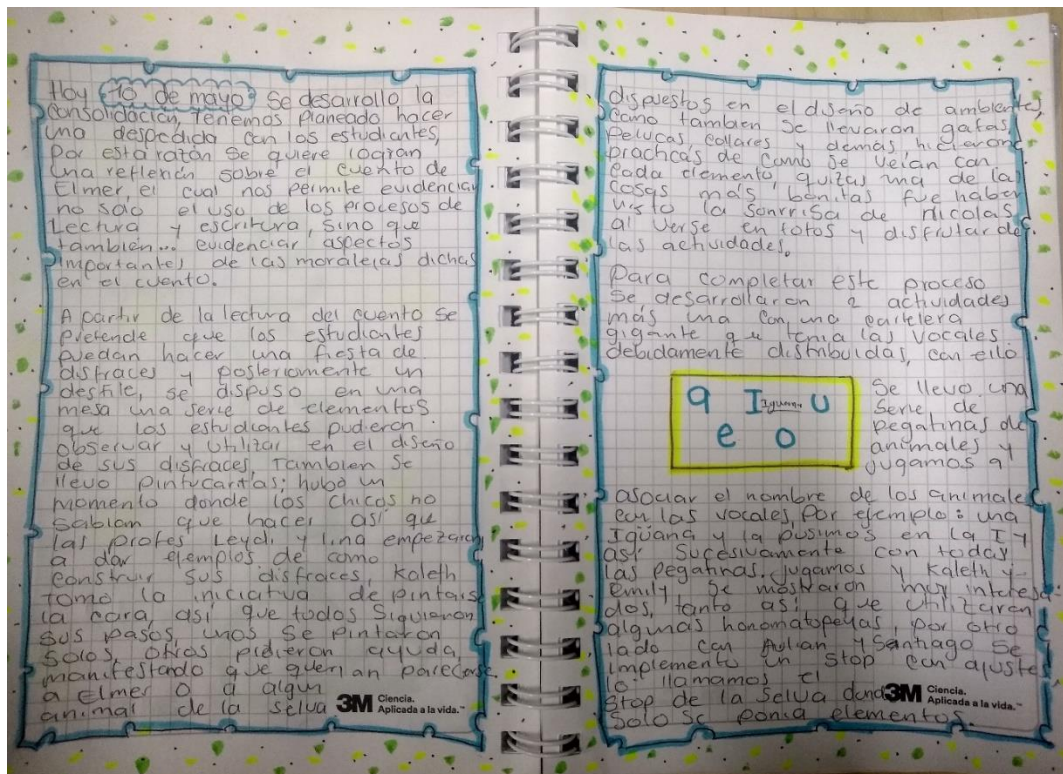 Hoy 10 de mayo se desarrollo la
consolidación, Tenemos planeado hacer
una despedida con los estudiantes,
Por esta razón se quiere logran
una reflexión sobre el cuento de
Elmer, el cual nos permite evidenciar
no solo el uso de los procesos de
Lectura y escritura, sino que
también... evidenciar aspectos
importantes de las moralejas dichas
en el cuento.
A partir de la lectura del cuento se
pretende que los estudiantes
puedan hacer una fiesta de
disfraces y posteriormente un
desfile, se dispuso en una
mesa una serie de elementos
que los estudiantes pudieron
observar y utilizar en el diseño
de sus disfraces, Tambien se
llevo pintucaritas; hubo un
momento donde los chicos no
sabiam que hacer así que
las profes Leydi y lina empezaron
a dar ejemplos de como
construir sus disfraces, Kaleth
tomo la iniciativa de pintarse
la cara, así que todos siguieron
sus pasos, unos se pintaron
solos, otros pidieron ayuda,
manifestando que querian parecerse
a Elmer o a algun
animal de la selva
3M Ciencia.
Aplicada a la vida.™
dispuestos en el diseño de ambientes,
como tambien se llevaron gafas,
pelucas, collares y demás hicieron
practicas de como se veian con
cada elemento, quizas una de las
cosas más bonitas fue haber
visto la sonrrisa de Nicolas
al verse en fotos y disfrutar de
las actividades.
Para completar este proceso
se desarrollaron 2 actividades
más una con una cartelera
gigante que tenia las vocales
debidamente distribuidas, con ello
a I Iguana U
e o
se llevo una
serie de
pegatinas de
animales y
jugamos a
asociar el nombre de los animales
con las vocales, Por ejemplo: una
Igüana y la pusimos en la I y
así sucesivamente con todas
las pegatinas. jugamos y Kaleth y
emily se mostraron muy interesa
dos, tanto así que utilizaron
algunas honomatopellas, por otro
lado con y Santiago se
implemento un stop con ajuste
lo llamamos el
stop de la selva donde
solo se ponia elementos.
3M Ciencia.
Aplicada a la vida.™